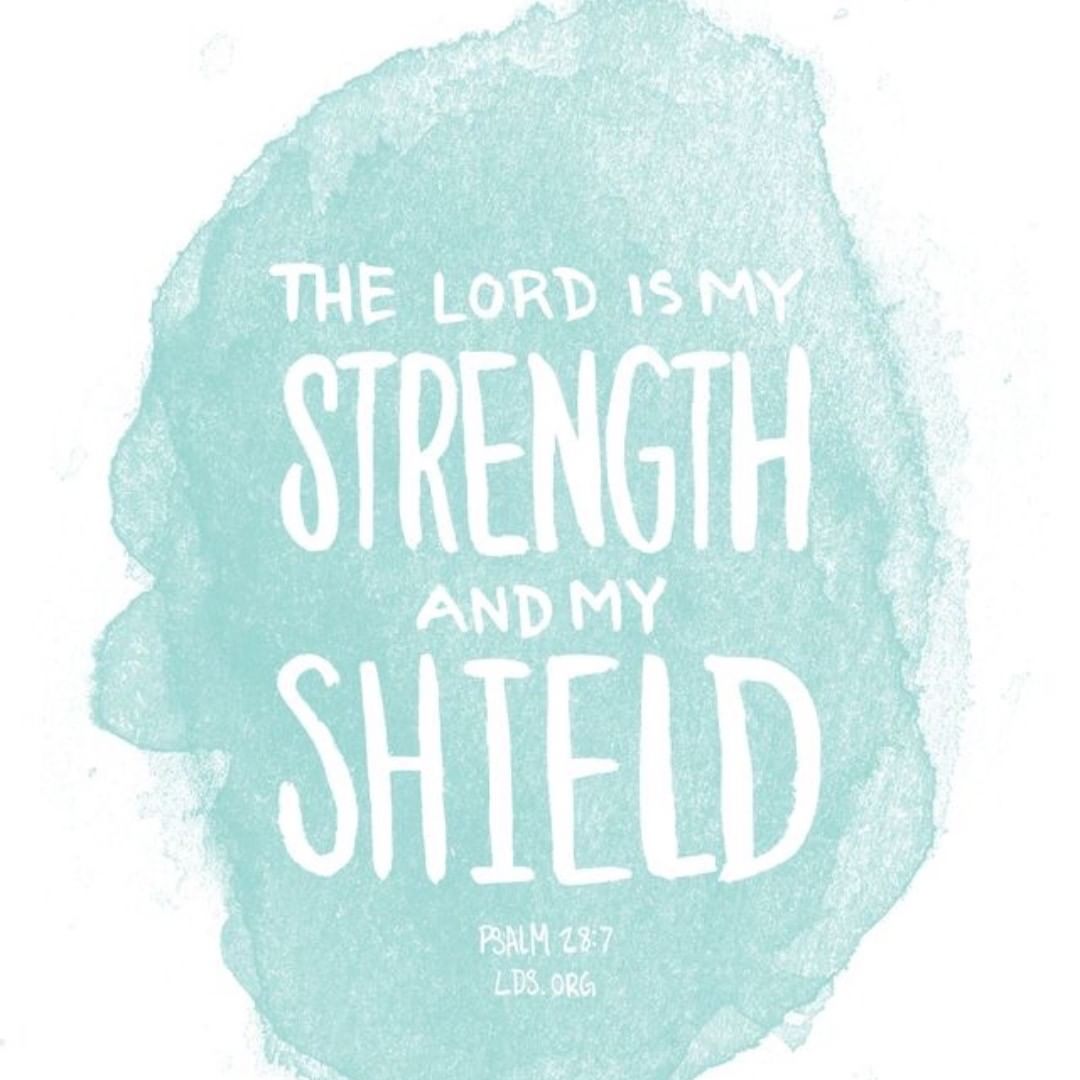 THE LORD IS MY
STRENGTH
AND MY
SHIELD
PSALM 28:7
LDS.ORG